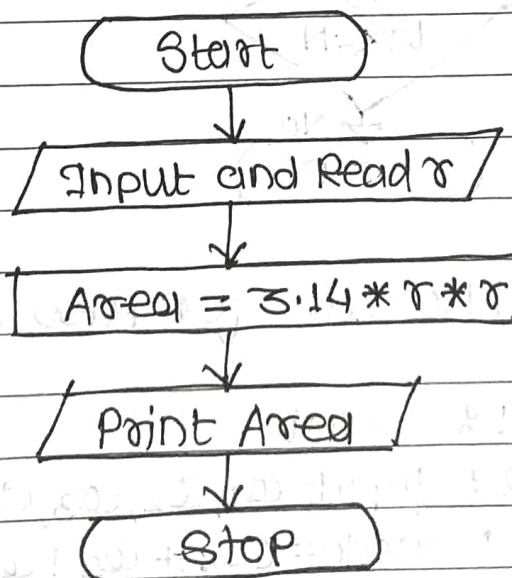 Start
Input and Read r
Area = 3.14 * r * r
Print Area
Stop